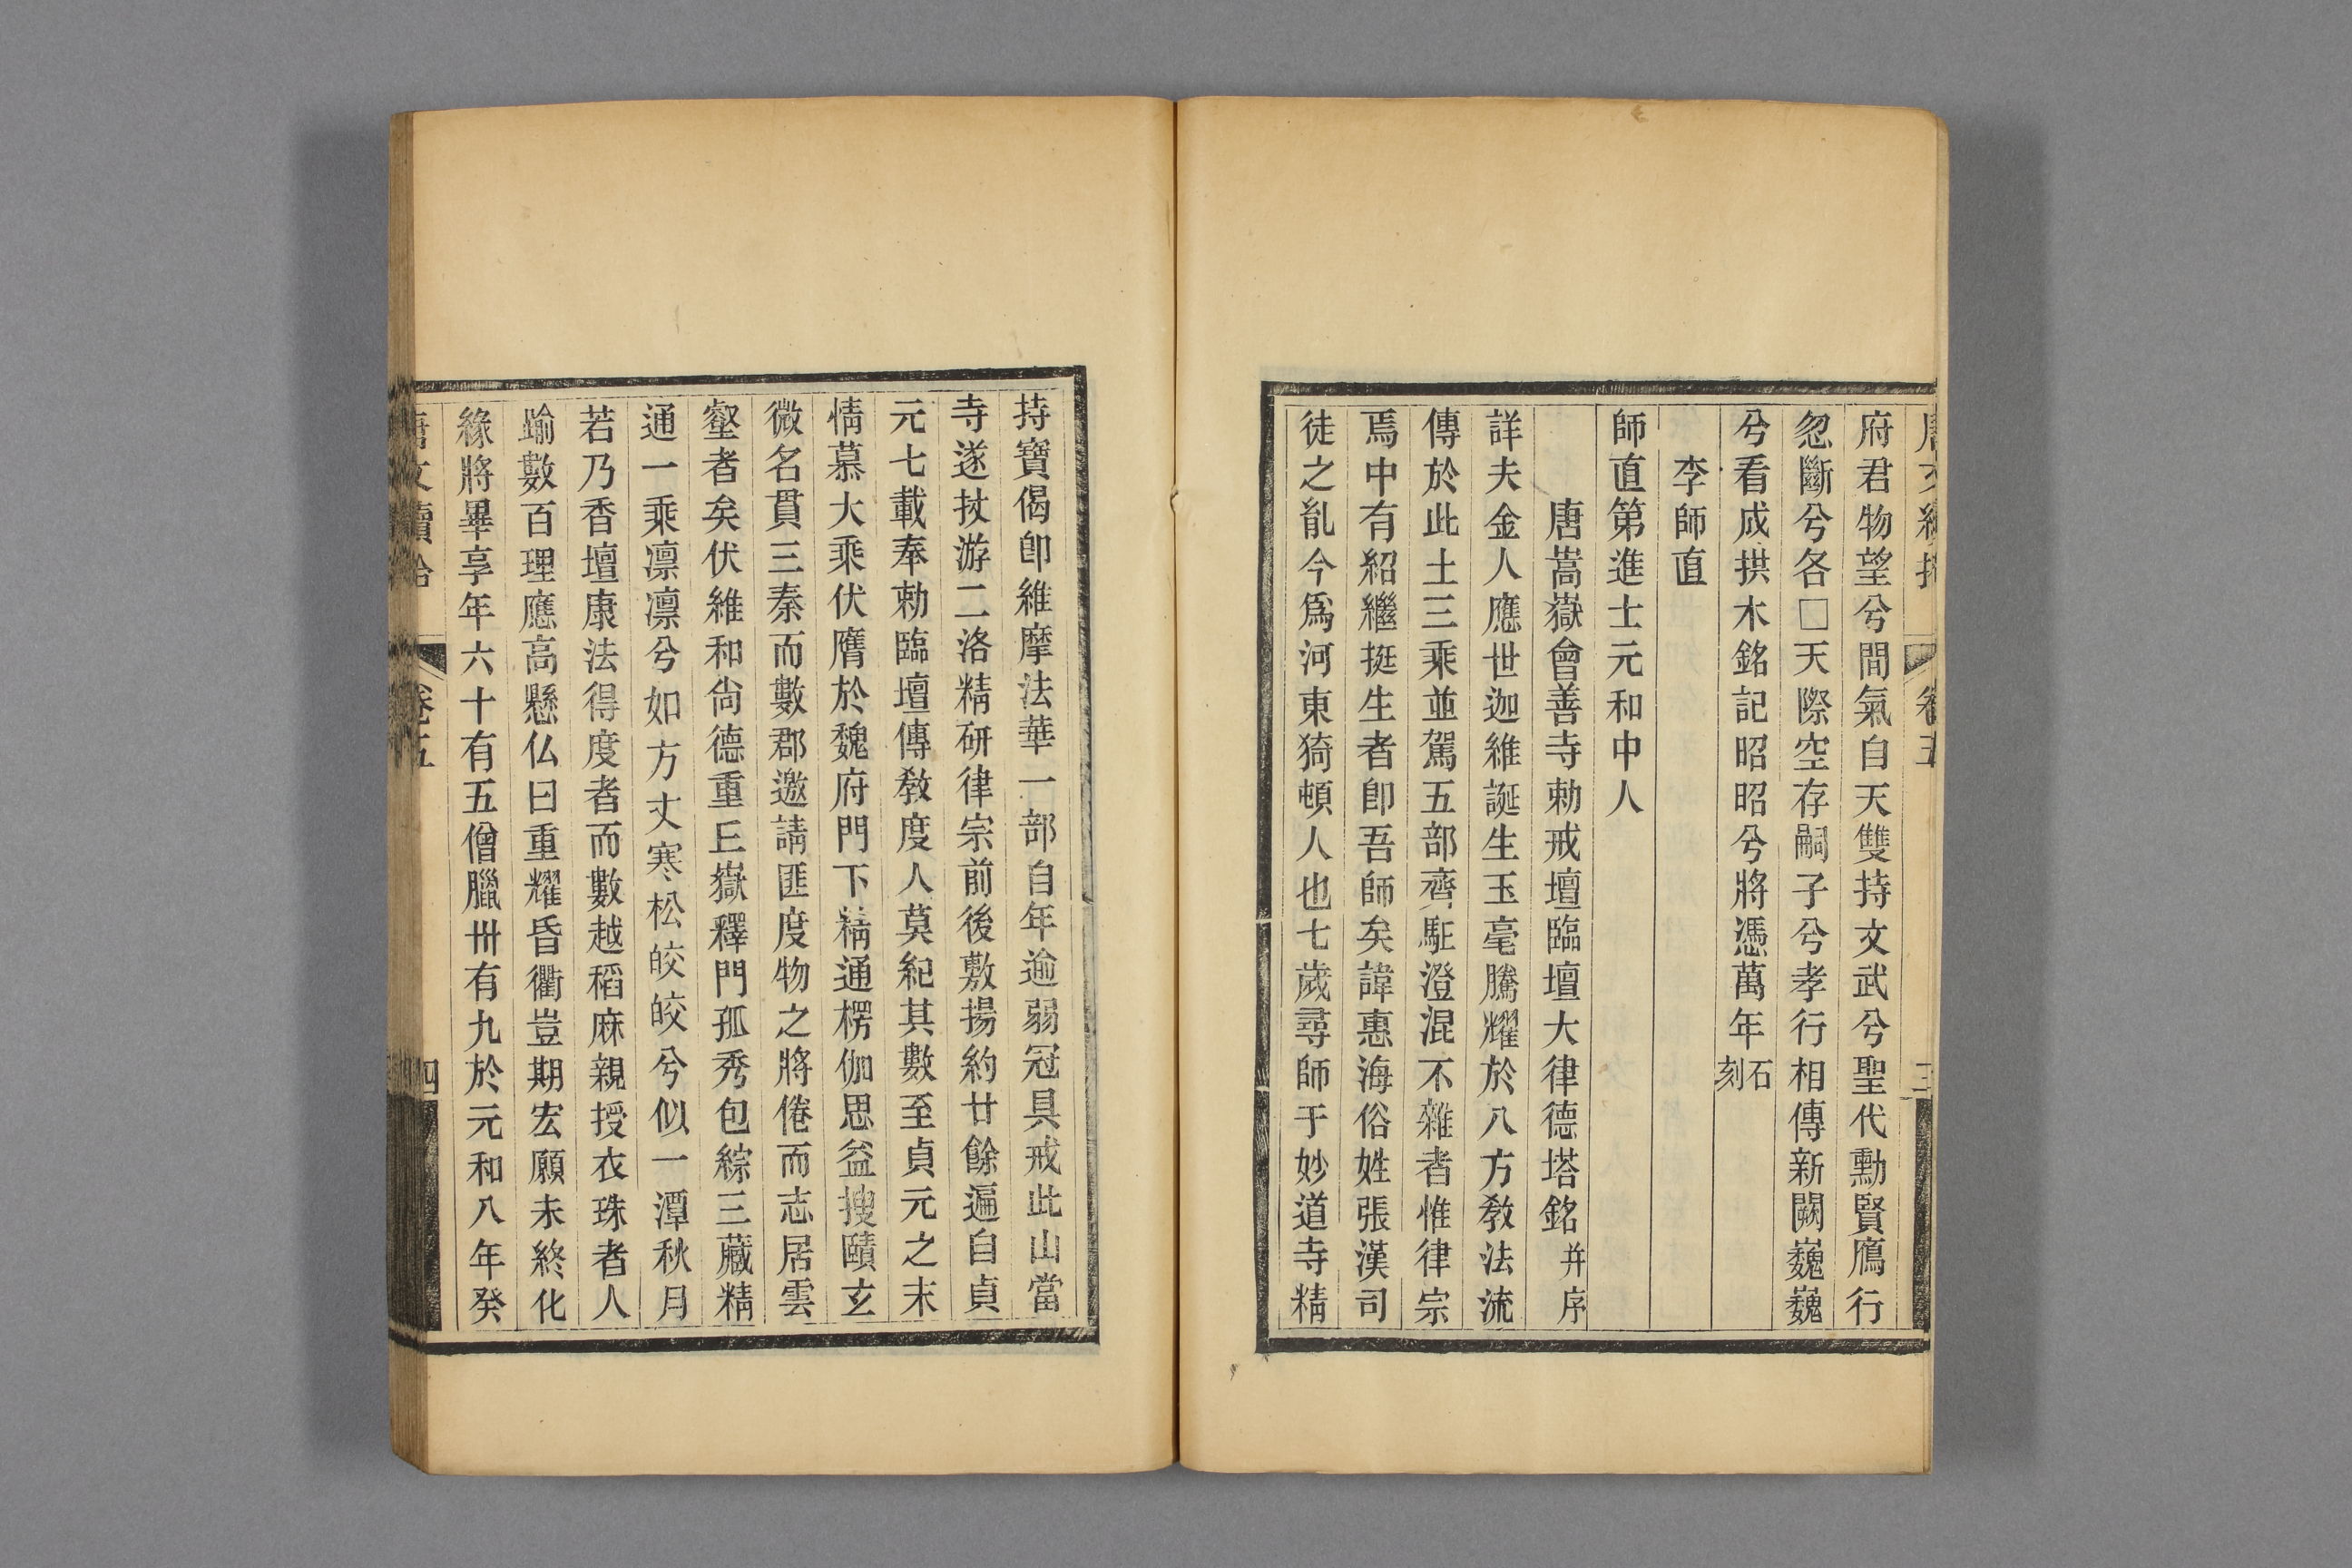 府君物望兮間氣自天雙持文武兮聖代勳賢鴈行
忽斷兮各□天際空存嗣子兮孝行相傳新闕巍巍
兮看成拱木銘記昭昭兮將憑萬年石刻
李師直
師直第進士元和中人
唐嵩嶽會善寺勅戒壇臨壇大律德塔銘并序
詳夫金人應世迦維誕生玉毫騰耀於八方教法流
傳於此土三乘並駕五部齊駈澄混不雜者惟律宗
焉中有紹繼挺生者卽吾師矣諱惠海俗姓張漢司
徒之胤今爲河東猗頓人也七歲尋師于妙道寺精
持寶偈卽維摩法華一部自年逾弱冠具戒此山當
寺遂扙游二洛精研律宗前後敷揚約廿餘遍自貞
元七載奉勅臨壇傳教度人莫紀其數至貞元之末
情慕大乘伏膺於魏府門下精通楞伽思益搜賾玄
微名貫三秦而數郡邀請匪度物之將倦而志居雲
壑者矣伏維和尙德重𠀇嶽釋門孤秀包綜三藏精
通一乘凛凛兮如方丈寒松皎皎兮似一潭秋月
若乃香壇康法得度者而數越稻麻親授衣珠者人
踰數百理應高懸仏日重耀昏衢豈期宏願未終化
緣將畢享年六十有五僧臘卅有九於元和八年癸
唐文續拾
卷五
四